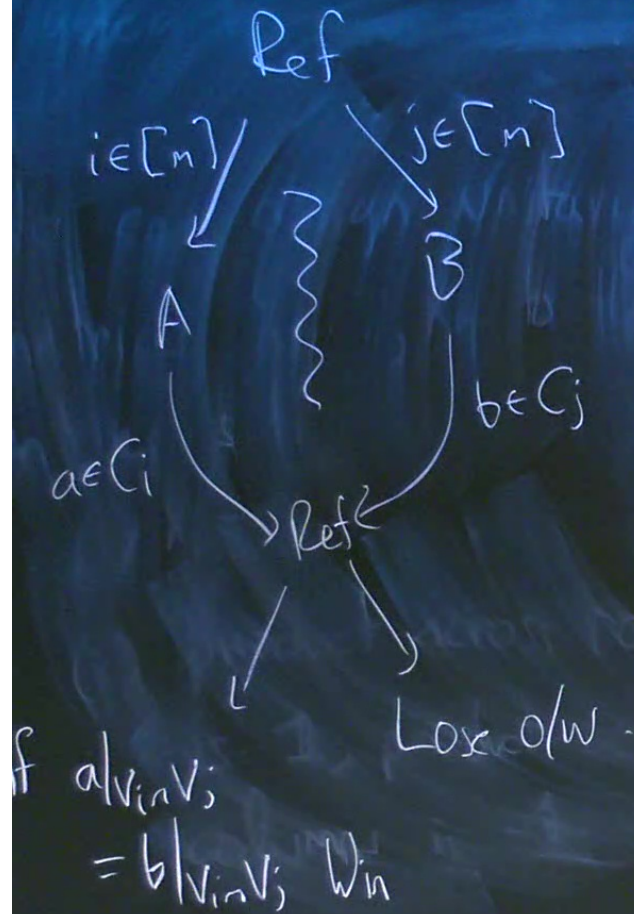 Ref
i∈[m] j∈[m]
A B
a∈Ci b∈Cj
Ref
Lose o/w.
f a|Vi∩Vj
= b|Vi∩Vj Win